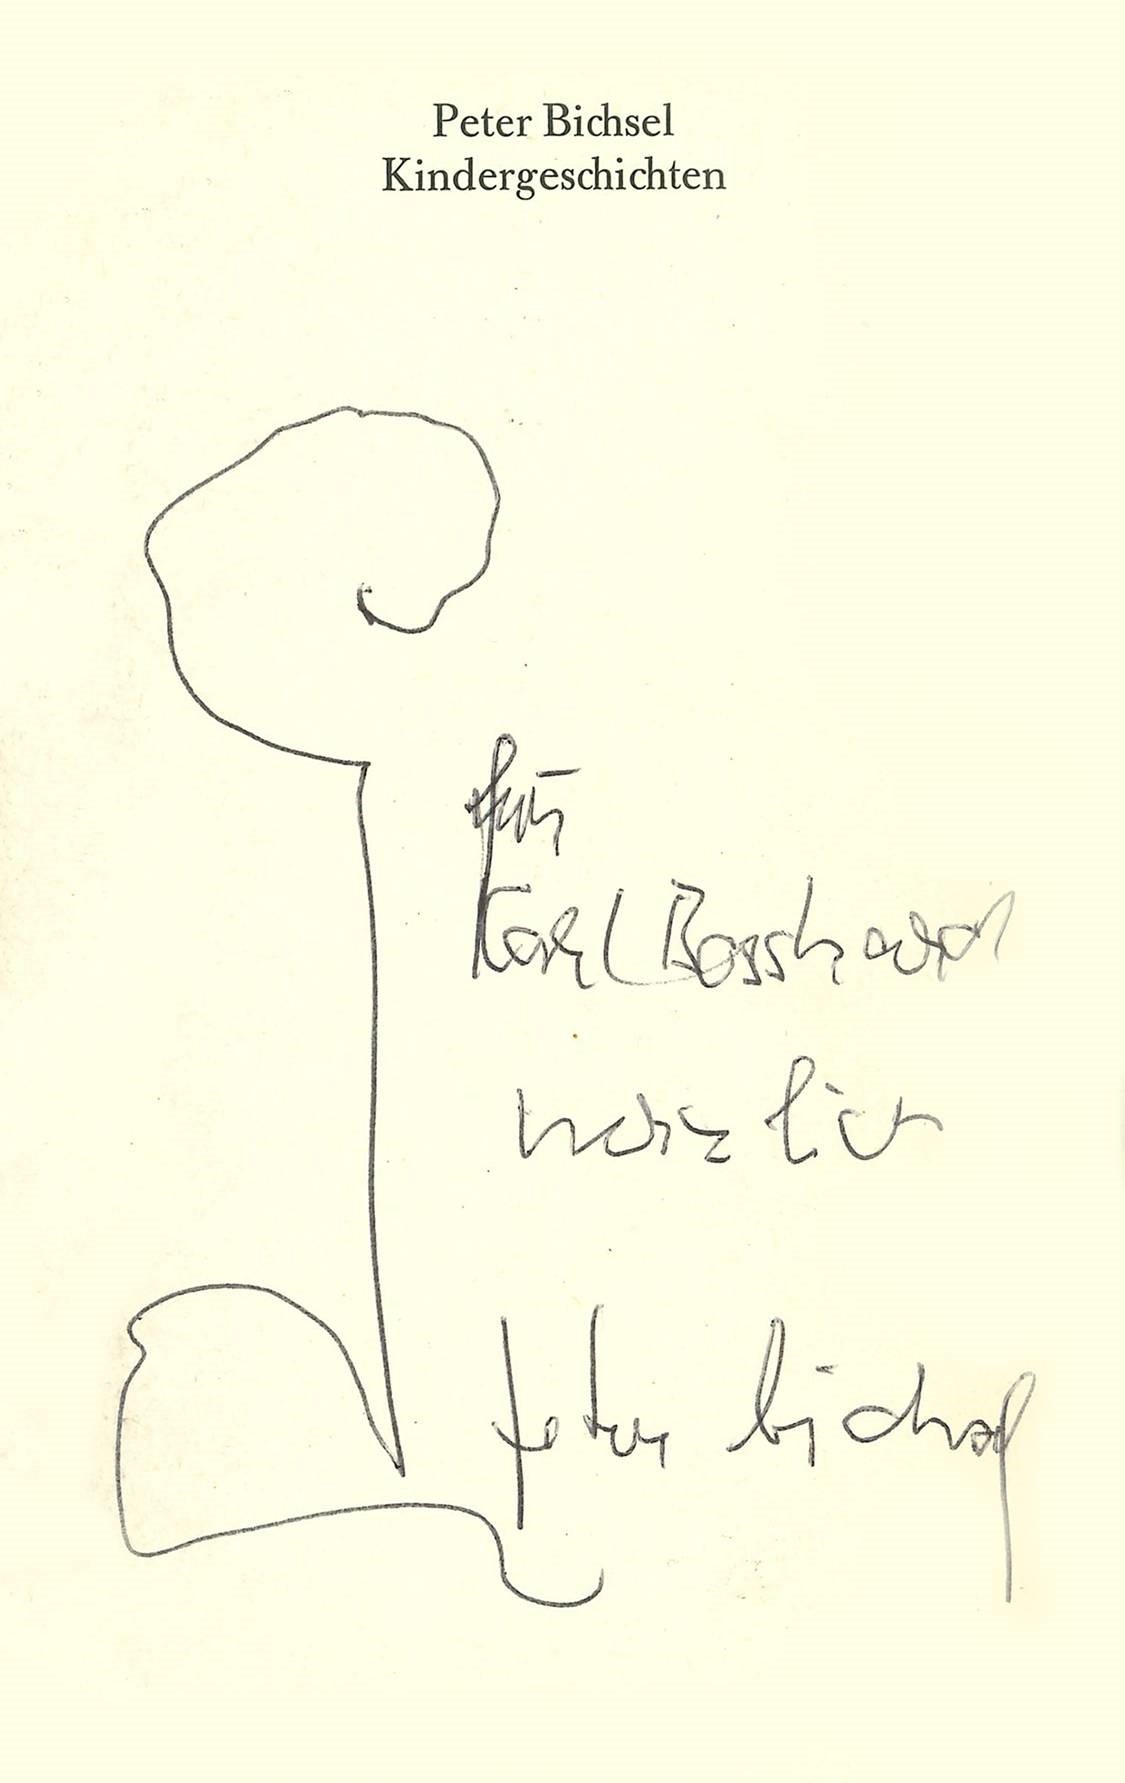 Peter Bichsel
Kindergeschichten
für
Karl Bosshard
herzlich
peter bichsel